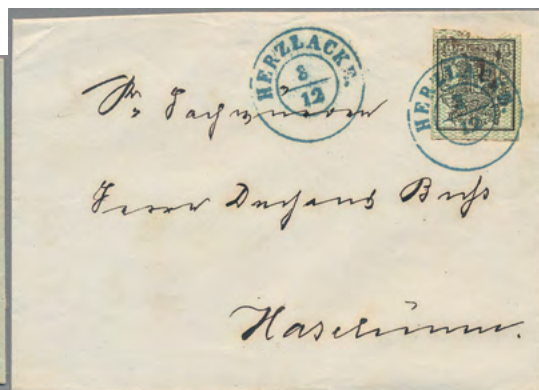 HERZLACKE.
8
12
HERZLACKE
8
12
Sr. Hochwürden
Herrn Dechant
Haselünne.